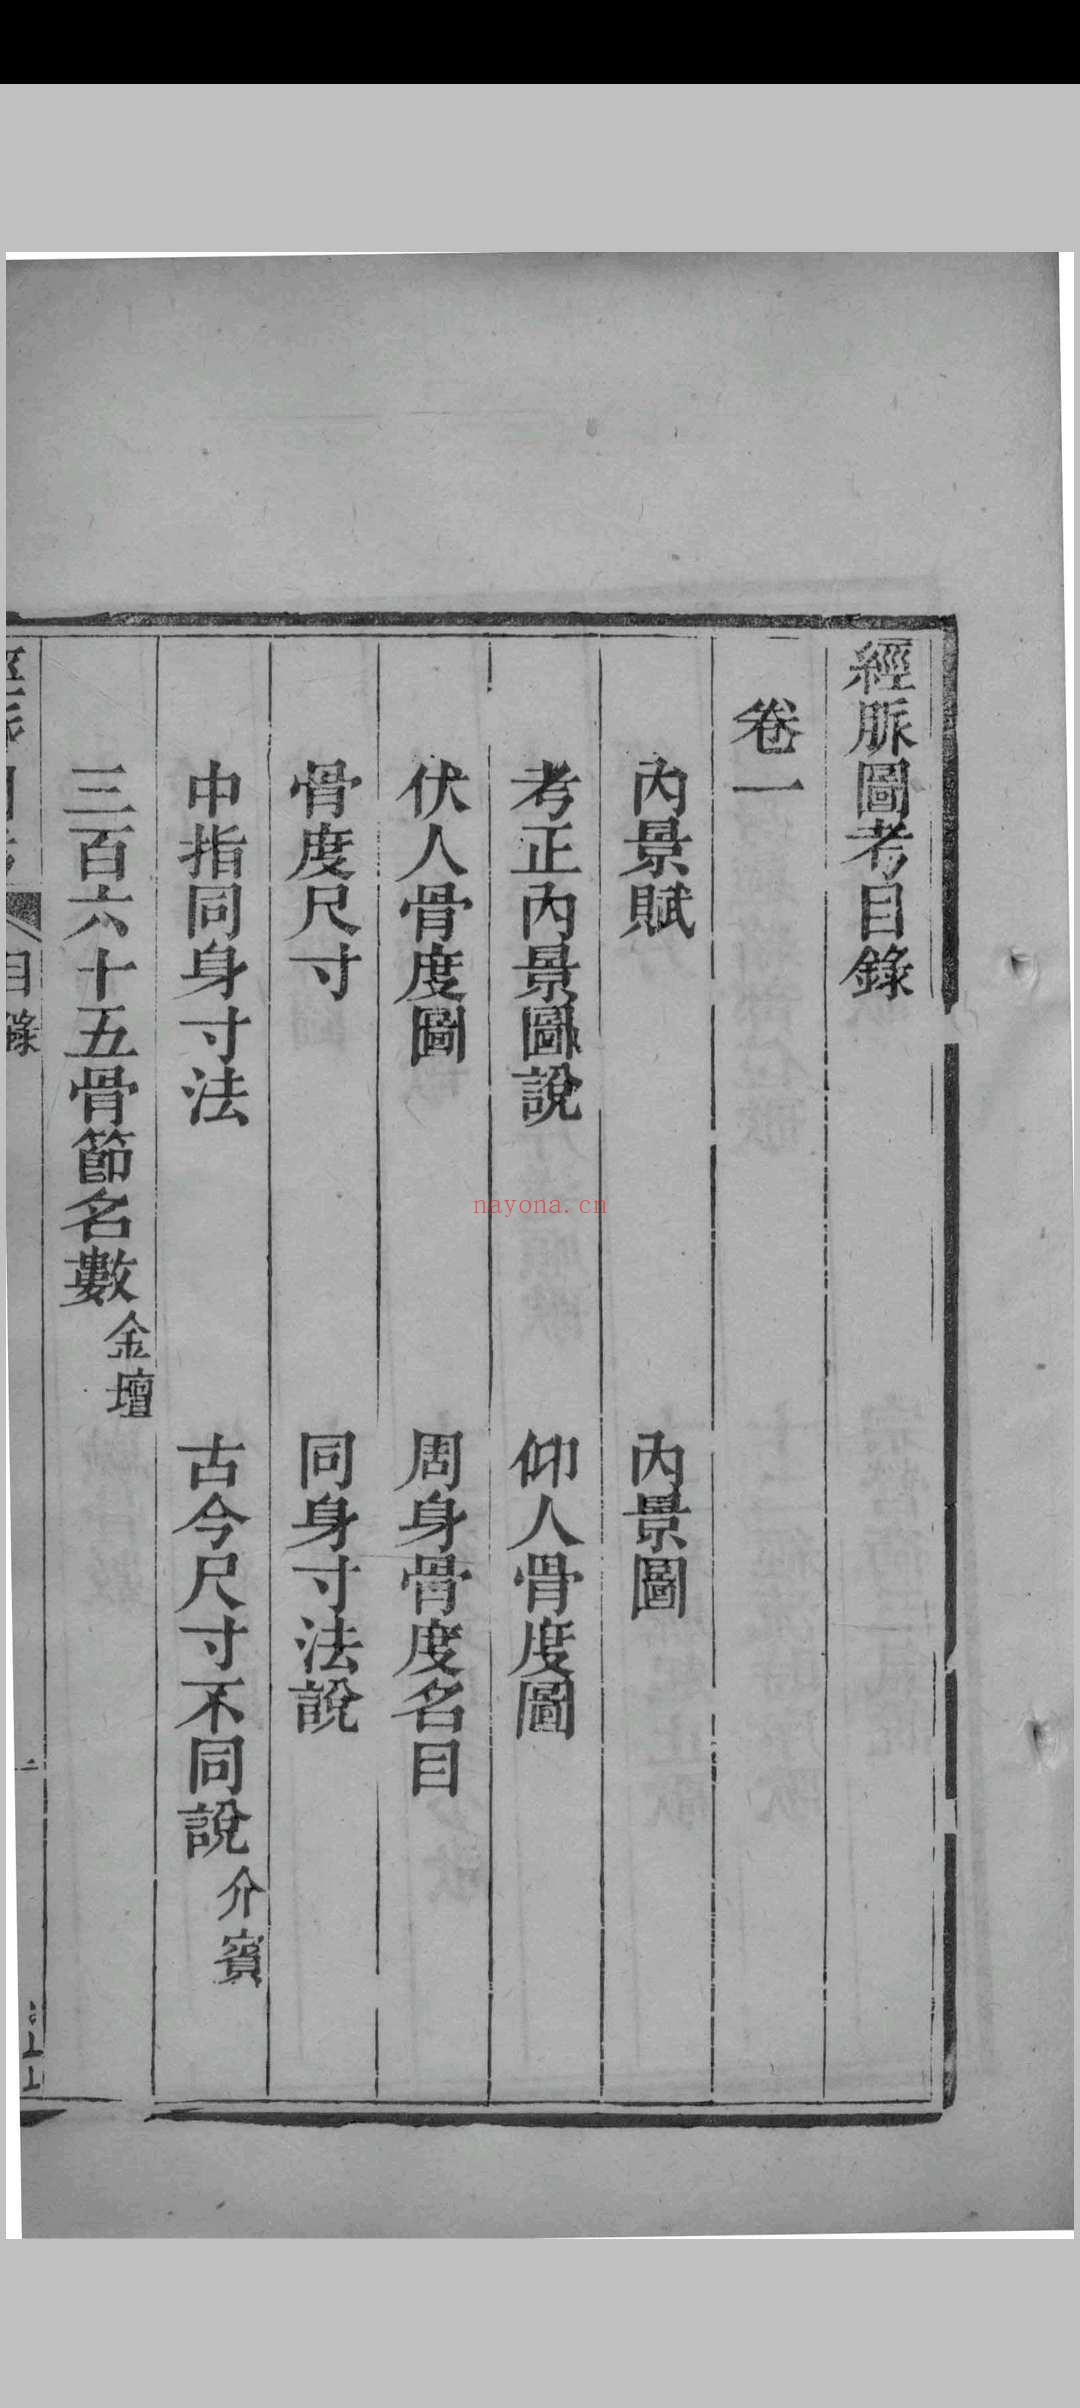 經脈圖考目錄
卷一
內景賦 內景圖
考正內景圖說 仰人骨度圖
伏人骨度圖 周身骨度名目
骨度尺寸 同身寸法說
中指同身寸法 古今尺寸不同說 介賓
三百六十五骨節名數 金壇
目錄
二
nayona.cn